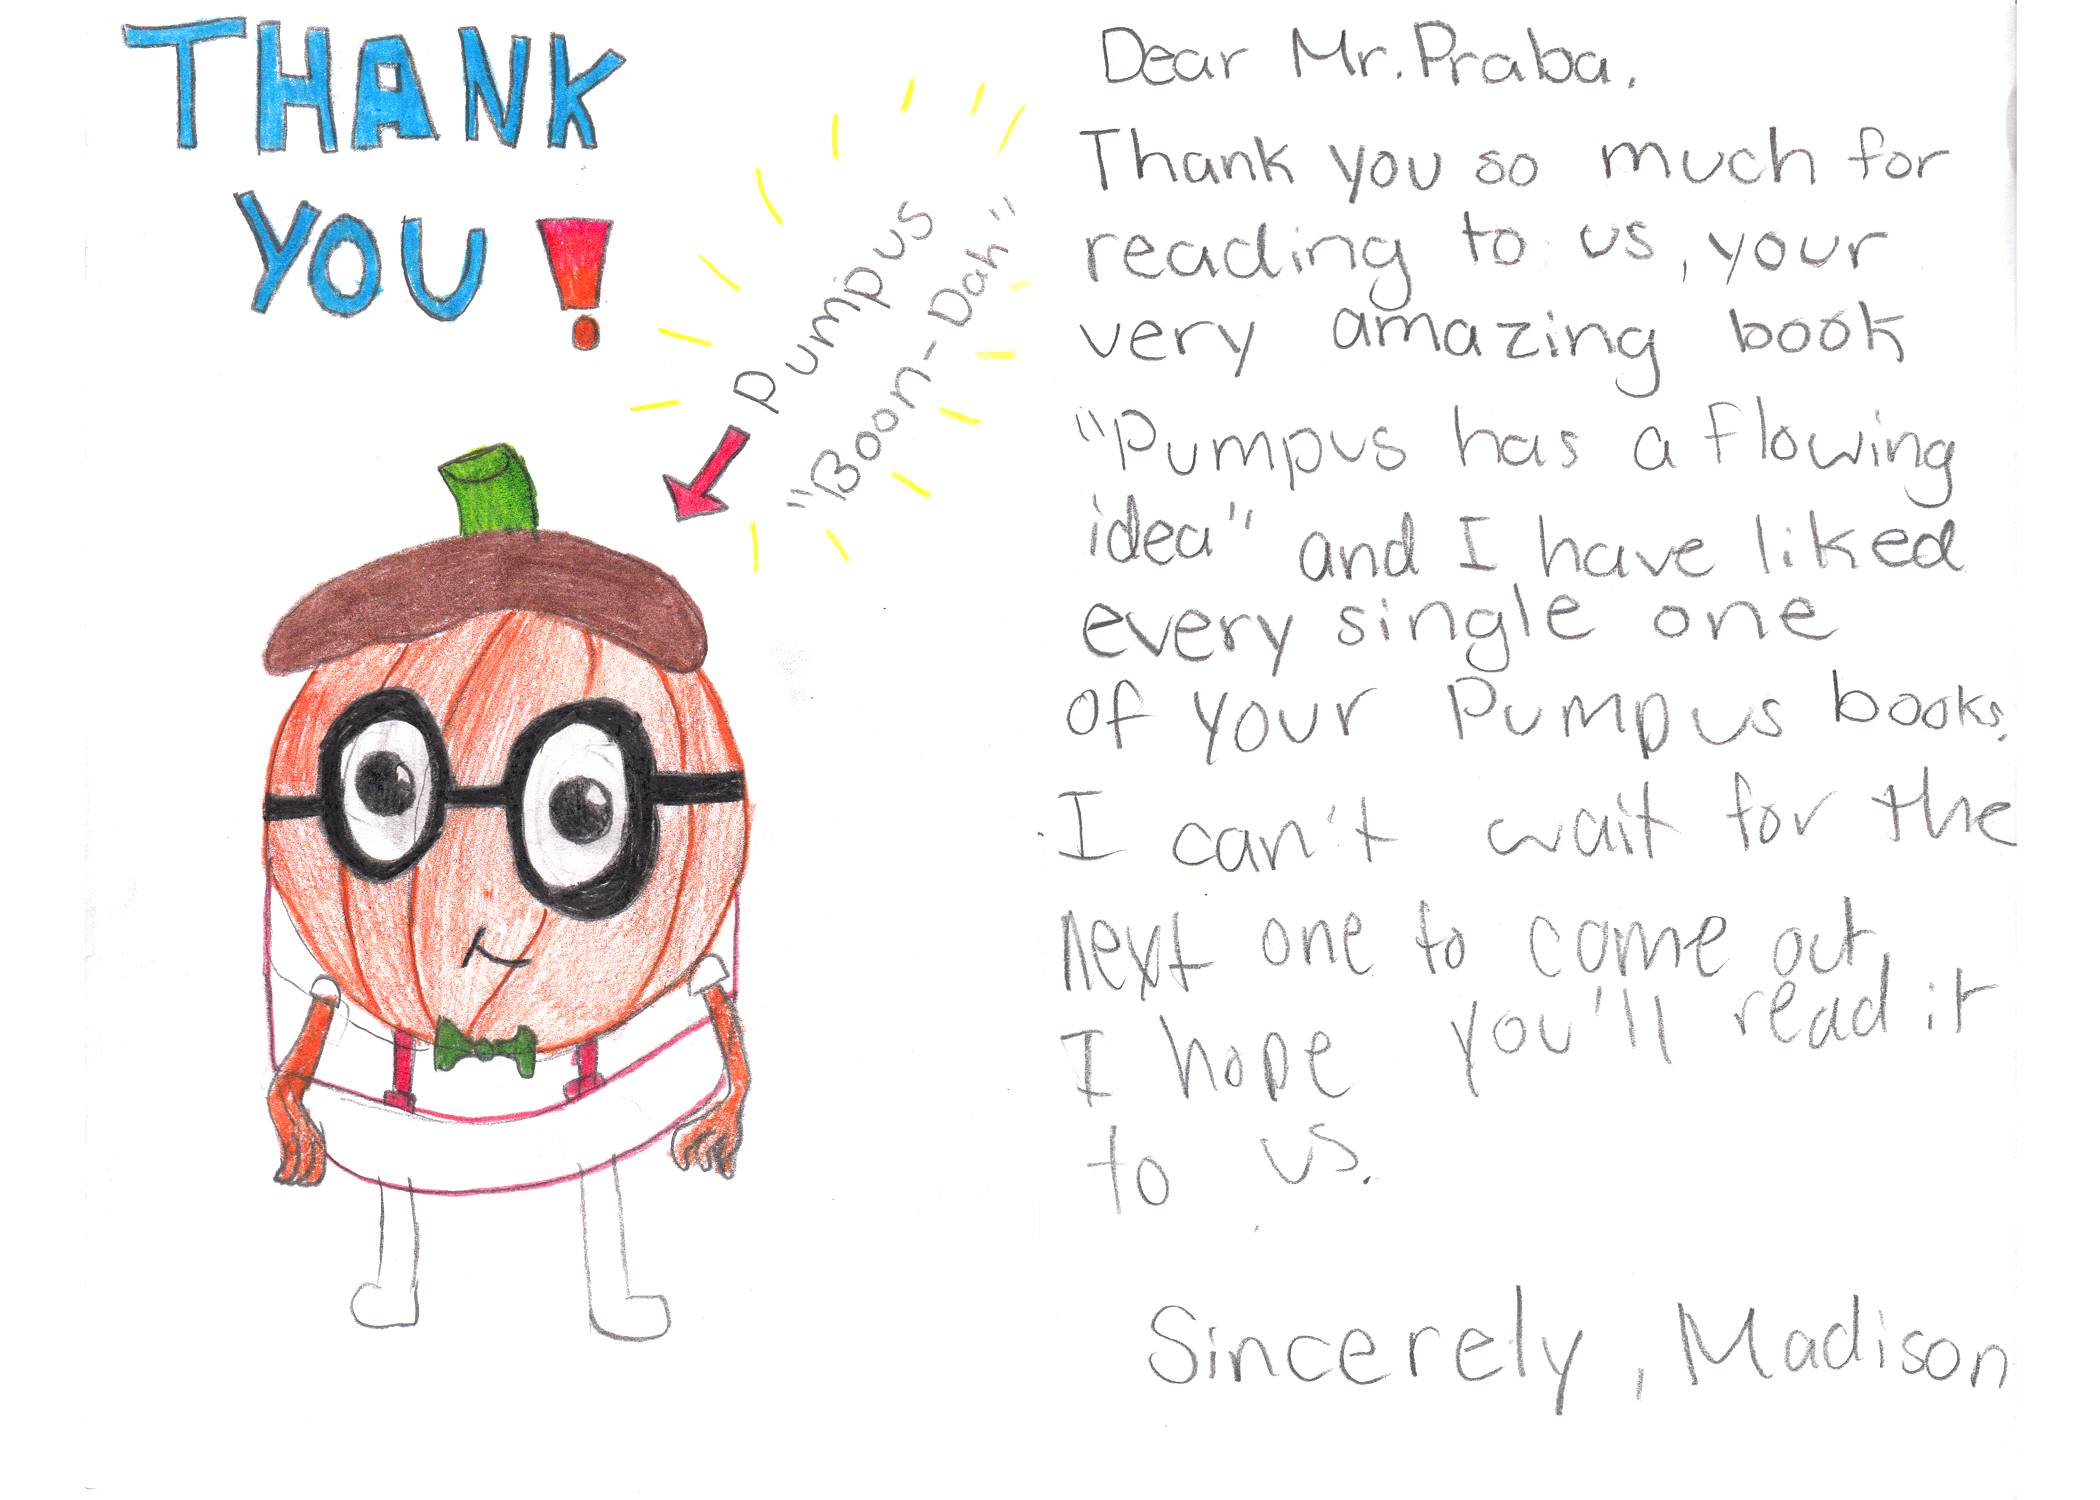 THANK
YOU!
Pumpus
"Boon-Dah"
Dear Mr. Praba,
Thank you so much for
reading to us, your
very amazing book
"Pumpus has a flowing
idea" and I have liked
every single one
of your Pumpus books.
I can't wait for the
next one to come out,
I hope you'll read it
to us.
Sincerely, Madison